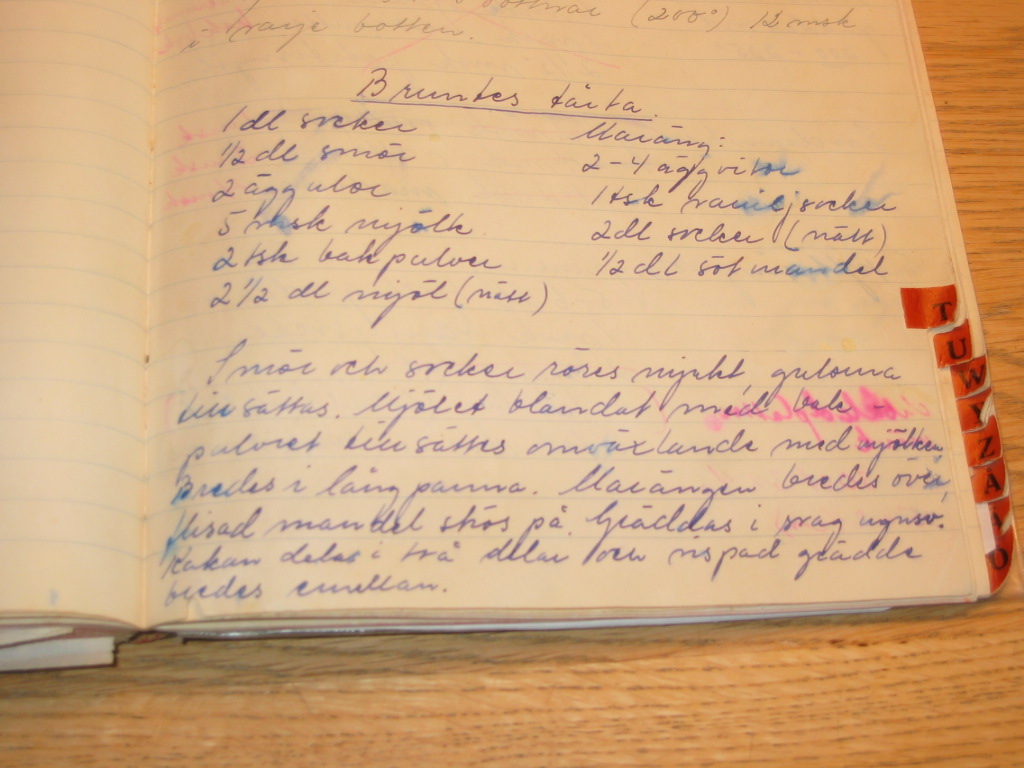 (200°) 12 msk
i varje botten.
Bruntes tårta.
1 dl socker
1/2 dl smör
2 äggulor
5 msk mjölk
2 tsk bakpulver
2 1/2 dl mjöl (mått)
Maräng:
2-4 äggvitor
1 tsk vaniljsocker
2 dl socker (mått)
1/2 dl sötmandel
Smör och socker röres mjukt, gulorna
tillsättas. Mjölet blandat med bak-
pulvret tillsättes omväxlande med mjölken.
Bredes i långpanna. Marängen bredes över,
flisad mandel strös på. Gräddas i svag ugnsv.
Kakan delas i två delar och vispad grädde
bredes emellan.
T
U
W
Y
Z
Å
Ä
Ö